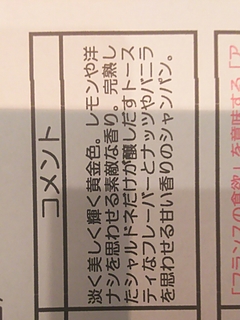 コメント
淡く美しく輝く黄金色。レモンや洋
ナシを思わせる素敵な香り。完熟し
たシャルドネだけが醸しだすトース
ティなフレーバーとナッツやバニラ
を思わせる甘い香りのシャンパン。
「フランスの食欲」を意味する「ア